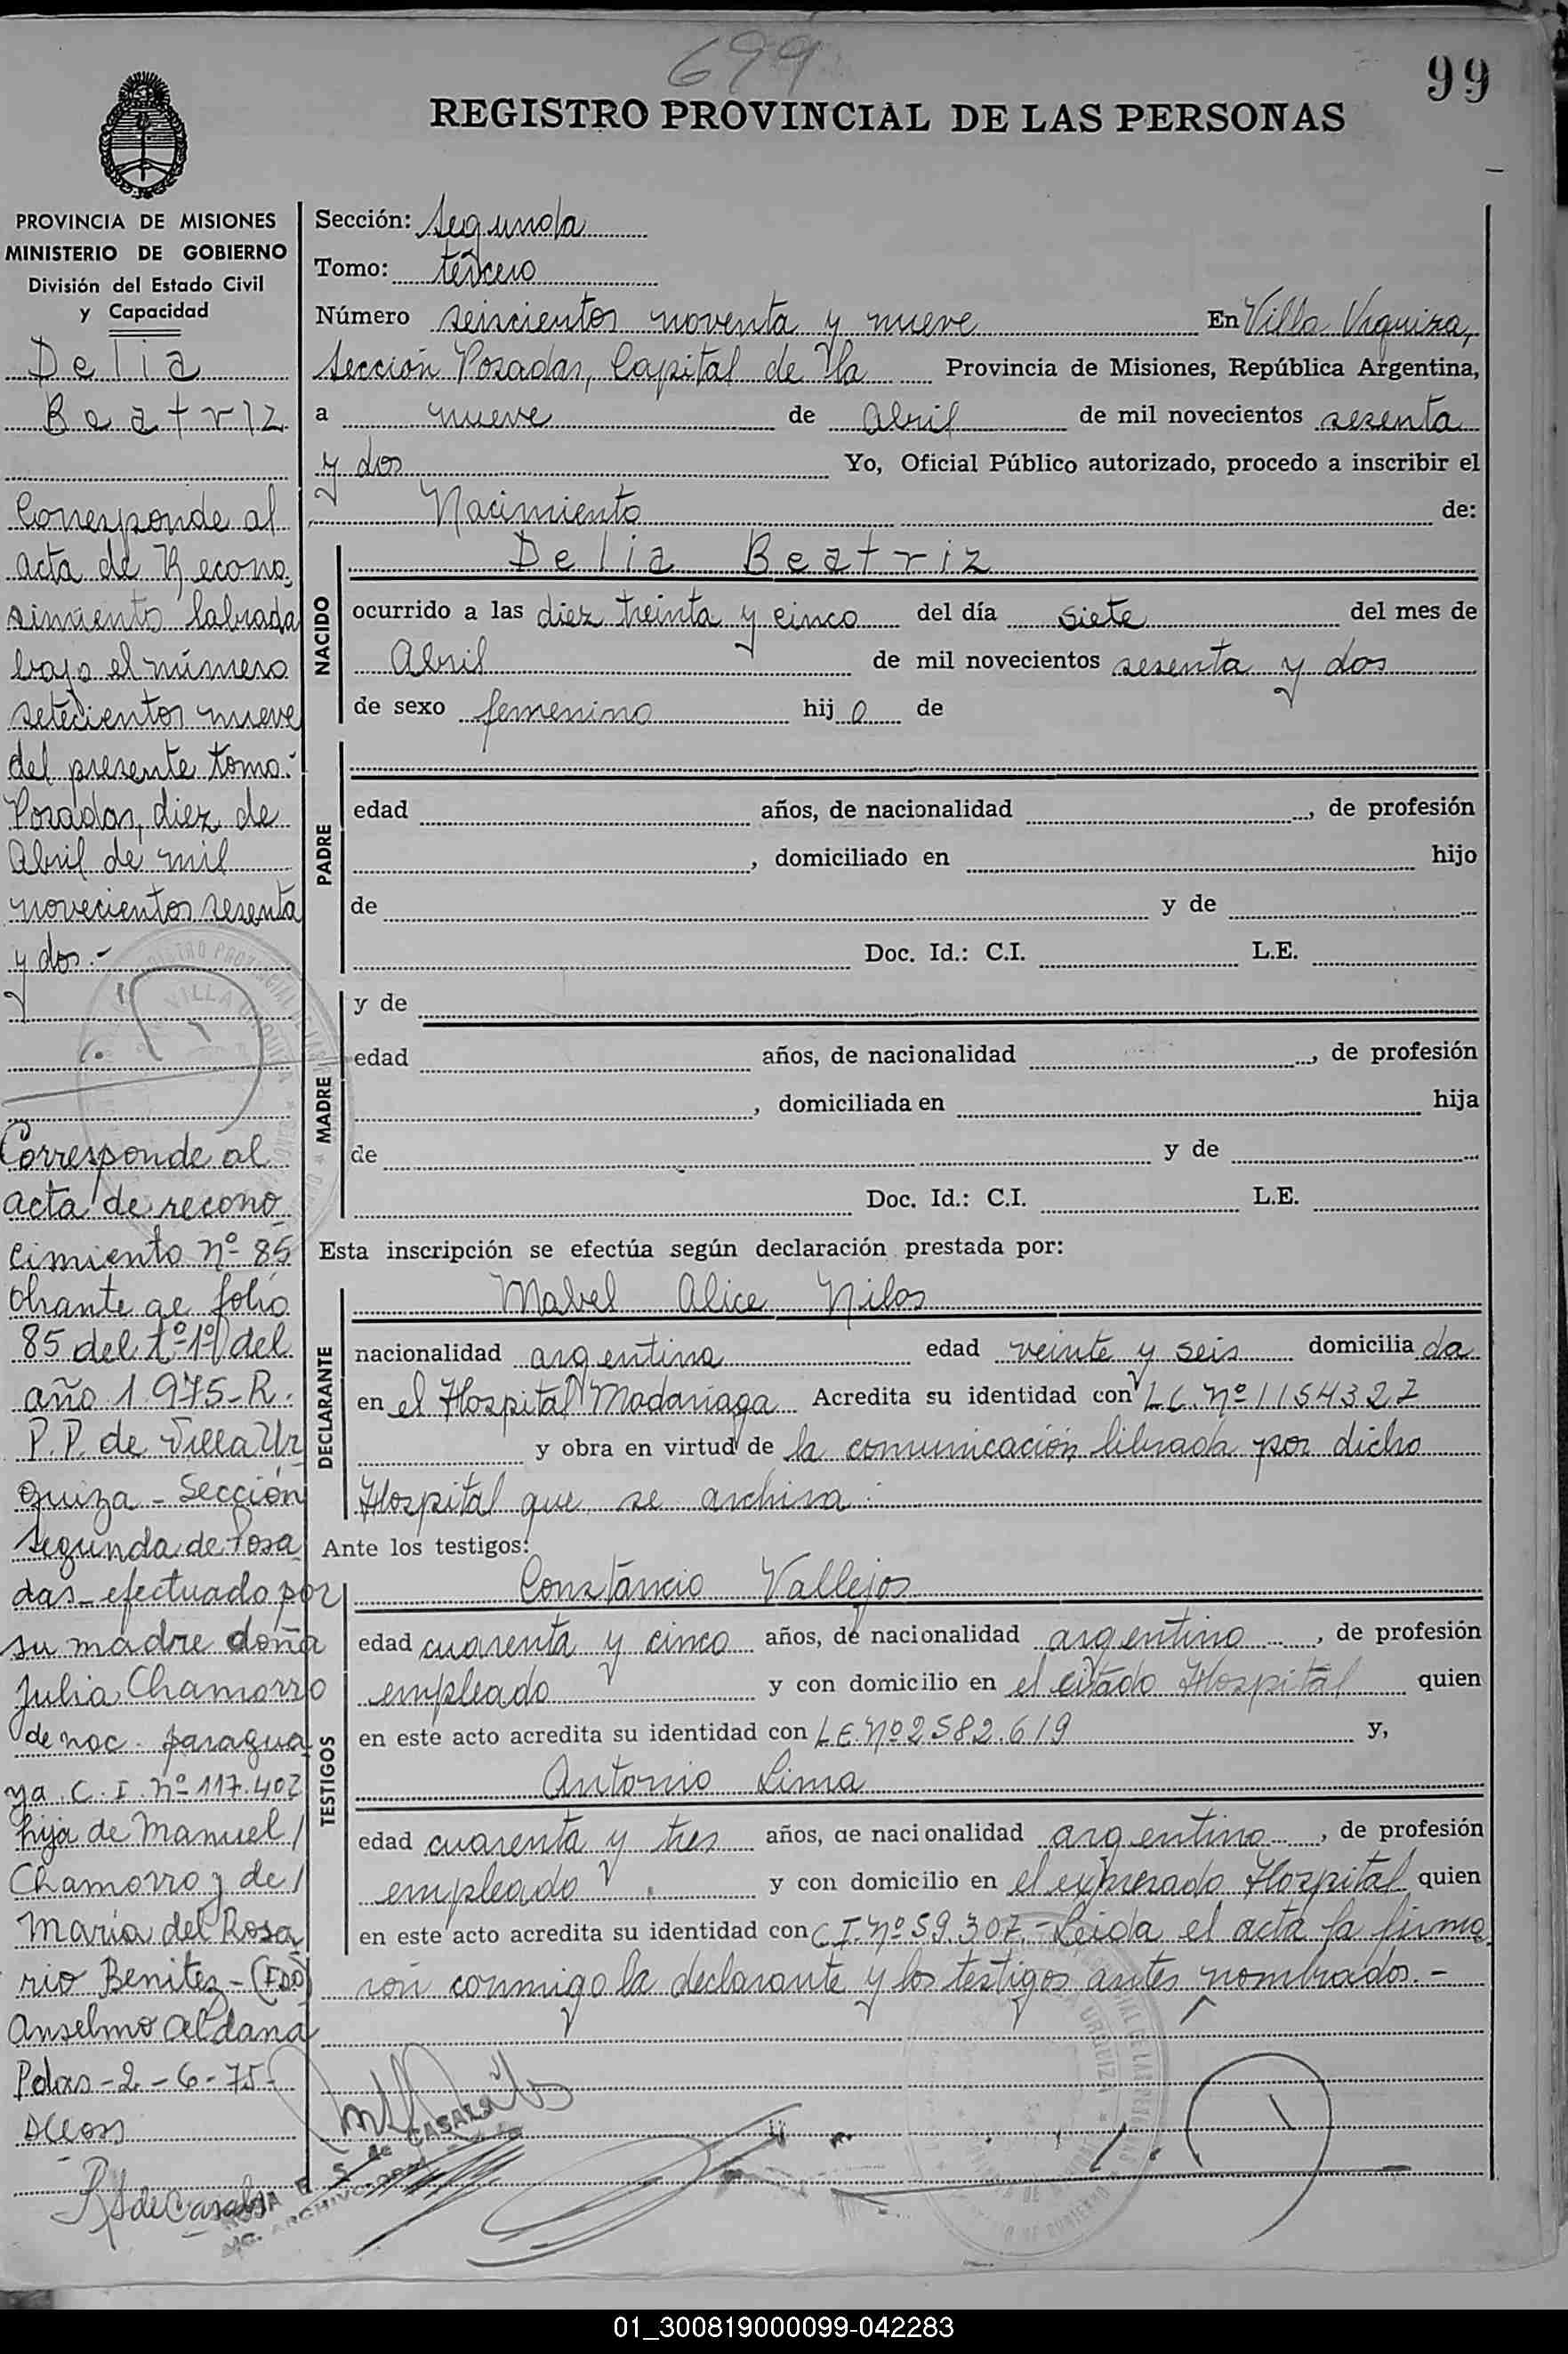 699
99
REGISTRO PROVINCIAL DE LAS PERSONAS
PROVINCIA DE MISIONES
MINISTERIO DE GOBIERNO
División del Estado Civil
y Capacidad
Delia
Beatriz
Corresponde al
acta de Recono
simiento labrada
bajo el número
setecientos nueve
del presente tomo.-
Posadas, diez de
Abril de mil
novecientos sesenta
y dos.-
Corresponde al
acta de recono
cimiento nº 85
obrante al folio
85 del tº 1º del
año 1.975-R.
P.P. de Villa Ur
quiza - Sección
segunda de Posa
das - efectuado por
su madre doña
Julia Chamorro
de nac. paragua
ya C.I. nº 117.402
hija de Manuel
Chamorro y de
Maria del Rosa
rio Benitez - (FDO)
Anselmo Aldana
Pdas - 2 - 6 - 75-
Sección: Segunda
Tomo: tercero
Número seiscientos noventa y nueve En Villa Urquiza,
Sección Posadas, Capital de la Provincia de Misiones, República Argentina,
a nueve de Abril de mil novecientos sesenta
y dos Yo, Oficial Público autorizado, procedo a inscribir el
Nacimiento de:
NACIDO
Delia Beatriz
ocurrido a las diez treinta y cinco del día siete del mes de
Abril de mil novecientos sesenta y dos
de sexo femenino hij a de
PADRE
edad años, de nacionalidad , de profesión
, domiciliado en hijo
de y de
Doc. Id.: C.I. L.E.
MADRE
y de
edad años, de nacionalidad , de profesión
, domiciliada en hija
de y de
Doc. Id.: C.I. L.E.
Esta inscripción se efectúa según declaración prestada por:
DECLARANTE
Mabel Alice Nilos
nacionalidad argentina edad veinte y seis domicilia da
en el Hospital Madariaga Acredita su identidad con L.C. Nº 1154327
y obra en virtud de la comunicación librada por dicho
Hospital que se archiva.-
Ante los testigos:
TESTIGOS
Constancio Vallejos
edad cuarenta y cinco años, de nacionalidad argentino , de profesión
empleado y con domicilio en el citado Hospital quien
en este acto acredita su identidad con L.E. Nº 2582.619 y,
Antonio Lima
edad cuarenta y tres años, de nacionalidad argentino , de profesión
empleado y con domicilio en el expresado Hospital quien
en este acto acredita su identidad con C.I. Nº 59.307.- Leida el acta la firma
ron conmigo la declarante y los testigos antes nombrados.-
01_300819000099-042283